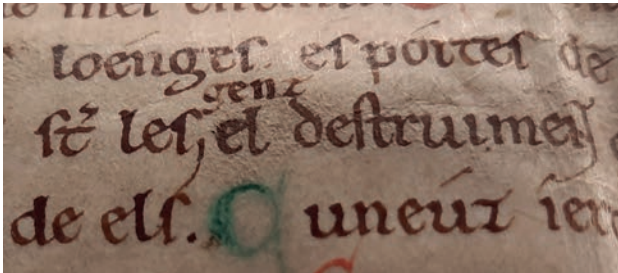 loenges. es portes de
genz
st̄ les el destruimen
de els. Cuneúz ier